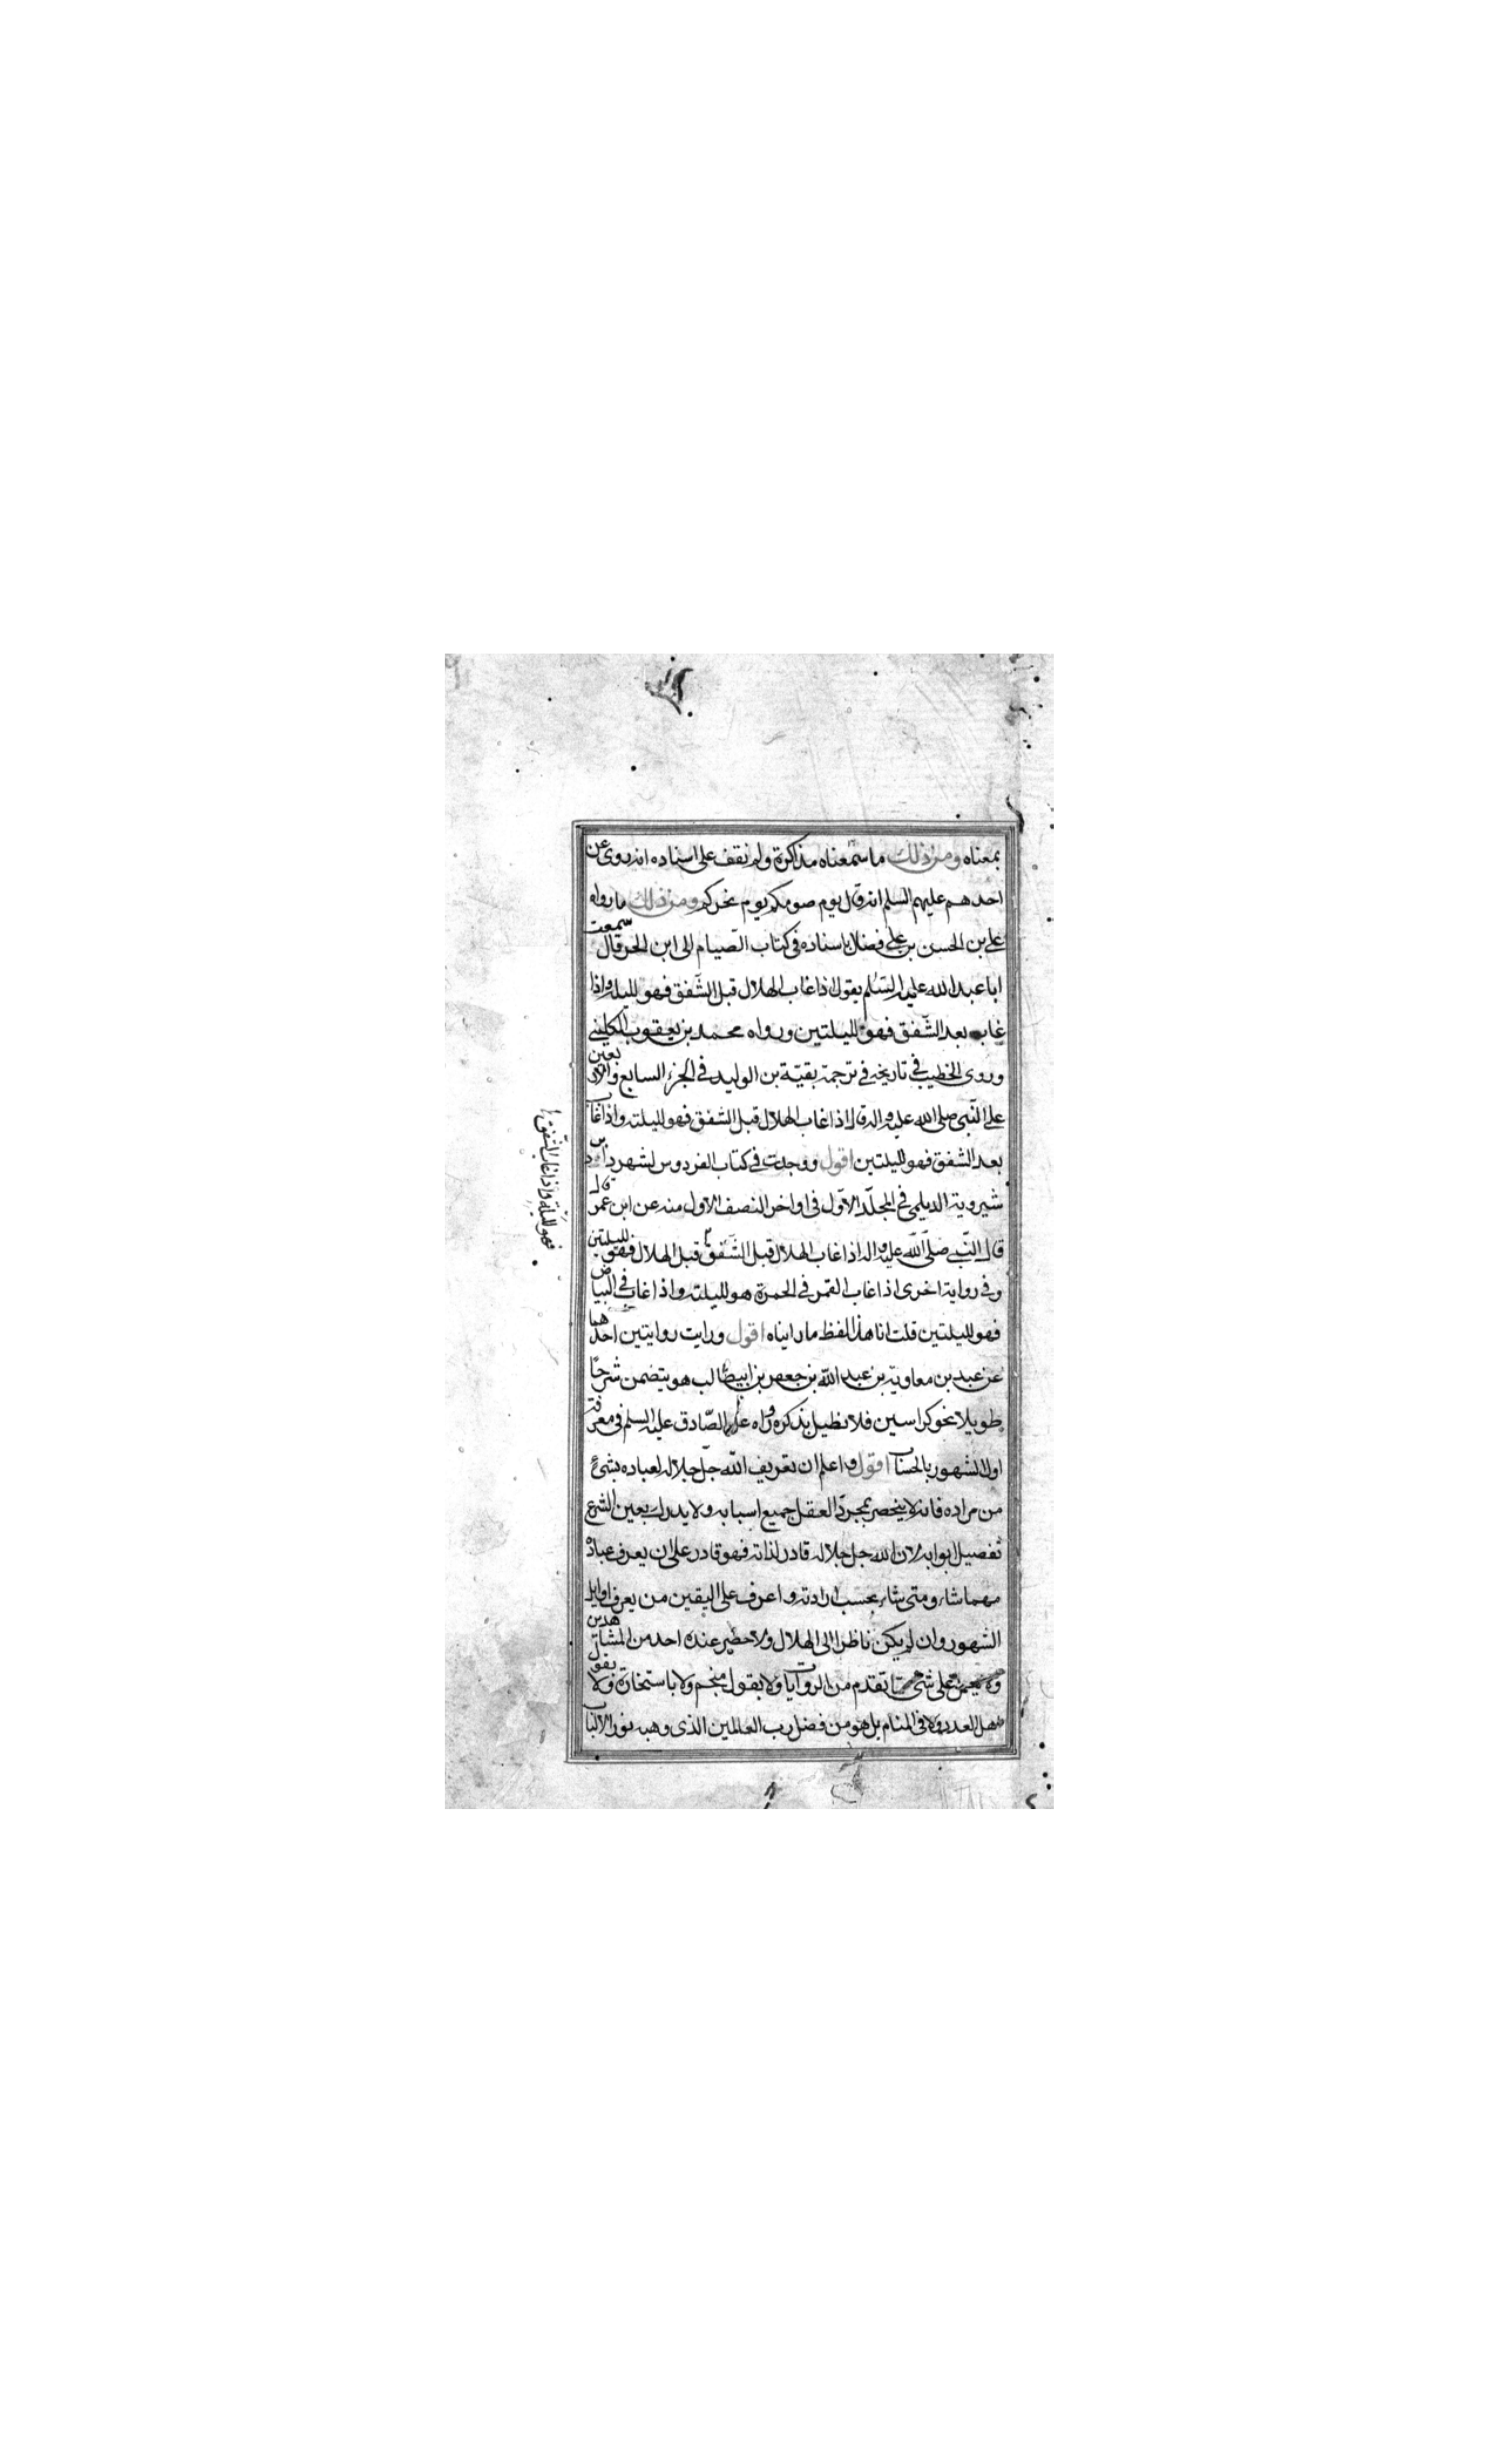 بمعناه ومن ذلك ما سمعناه مذاكرة ولم نقف على اسناده انه روى عن
احدهم عليهم السلم انه قال يوم صومكم يوم نحركم ومن ذلك ما رواه
على بن الحسن بن على فضل باسناده فى كتاب الصيام الى ابن الحر قال سمعت
ابا عبد الله عليه السلم يقول اذا غاب الهلال قبل الشفق فهو لليله واذا
غاب بعد الشفق فهو لليلتين ورواه محمد بن يعقوب الكلينى
وروى الخطيب فى تاريخه فى ترجمة بقية بن الوليد فى الجزء السابع والاربعين
على النبى صلى الله عليه واله قال اذا غاب الهلال قبل الشفق فهو لليلته واذا غاب
بعد الشفق فهو لليلتين اقول ووجدت فى كتاب الفردوس لشهردار بن
شيروية الديلمى فى المجلد الاول فى اواخر النصف الاول منه عن ابن عمر قال
قال النبى صلى الله عليه واله اذا غاب الهلال قبل الشفق قبل الهلال فهو لليلتين
وفى رواية اخرى اذا غاب القمر فى الحمرة هو لليلته واذا غاب فى البياض
فهو لليلتين قلت انا هذا لفظ ما رايناه اقول ورايت روايتين احدهما
عن عبد بن معاوية بن عبد الله بن جعفر بن ابيطالب هو يتضمن شرحا
طويلا نحو كراسين فلا نطيل بذكره رواه عن الصادق عليه السلم فى معرفة
اول الشهور بالحساب اقول واعلم ان تعريف الله جل جلاله لعباده بشئ
من مراده فانه لا ينحصر بمجرد العقل جميع اسبابه ولا يدرك بعين الشرع
تفصيل ابوابه لان الله جل جلاله قادر لذاته فهو قادر على ان يعرف عباده
مهما شاء ومتى شاء بحسب ارادته واعرف على اليقين من يعرف اوايل
الشهور وان لم يكن ناظرا الى الهلال ولا حضر عنده احد من المشاهدين
على شئ تقدم من الروايات ولا بقول منجم ولا باستخارة ولا بقول
اهل العدد ولا فى المنام بل هو من فضل رب العالمين الذى وهبه نور الالباب
فهو لليلة واذا غاب الشفق